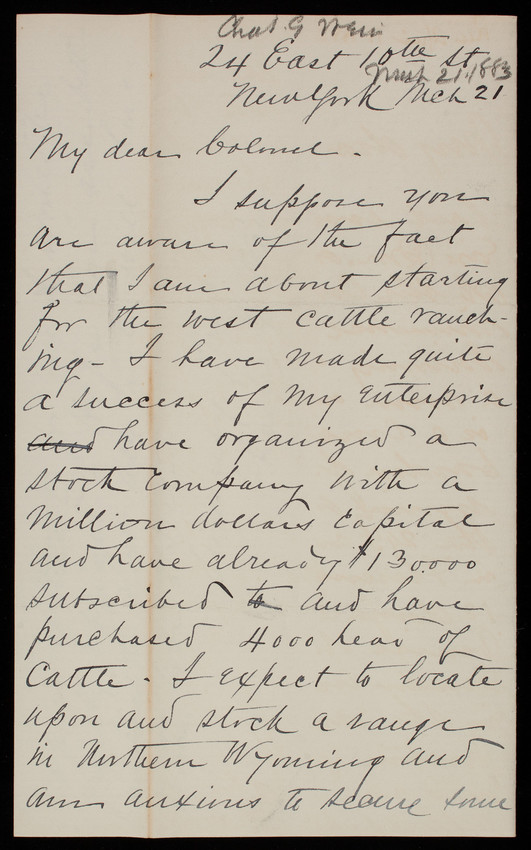 Chas. G Weir
24 East 10th st
March 21, 1883
New York Mch 21
My dear Colonel.
I suppose you
are aware of the fact
that I am about starting
for the west cattle ranch-
ing - I have made quite
a success of my enterprise
and have organized a
stock company with a
million dollars capital
and have already $130.000
subscribed to and have
purchased 4000 head of
Cattle - I expect to locate
upon and stock a range
in Northern Wyoming and
am anxious to secure some